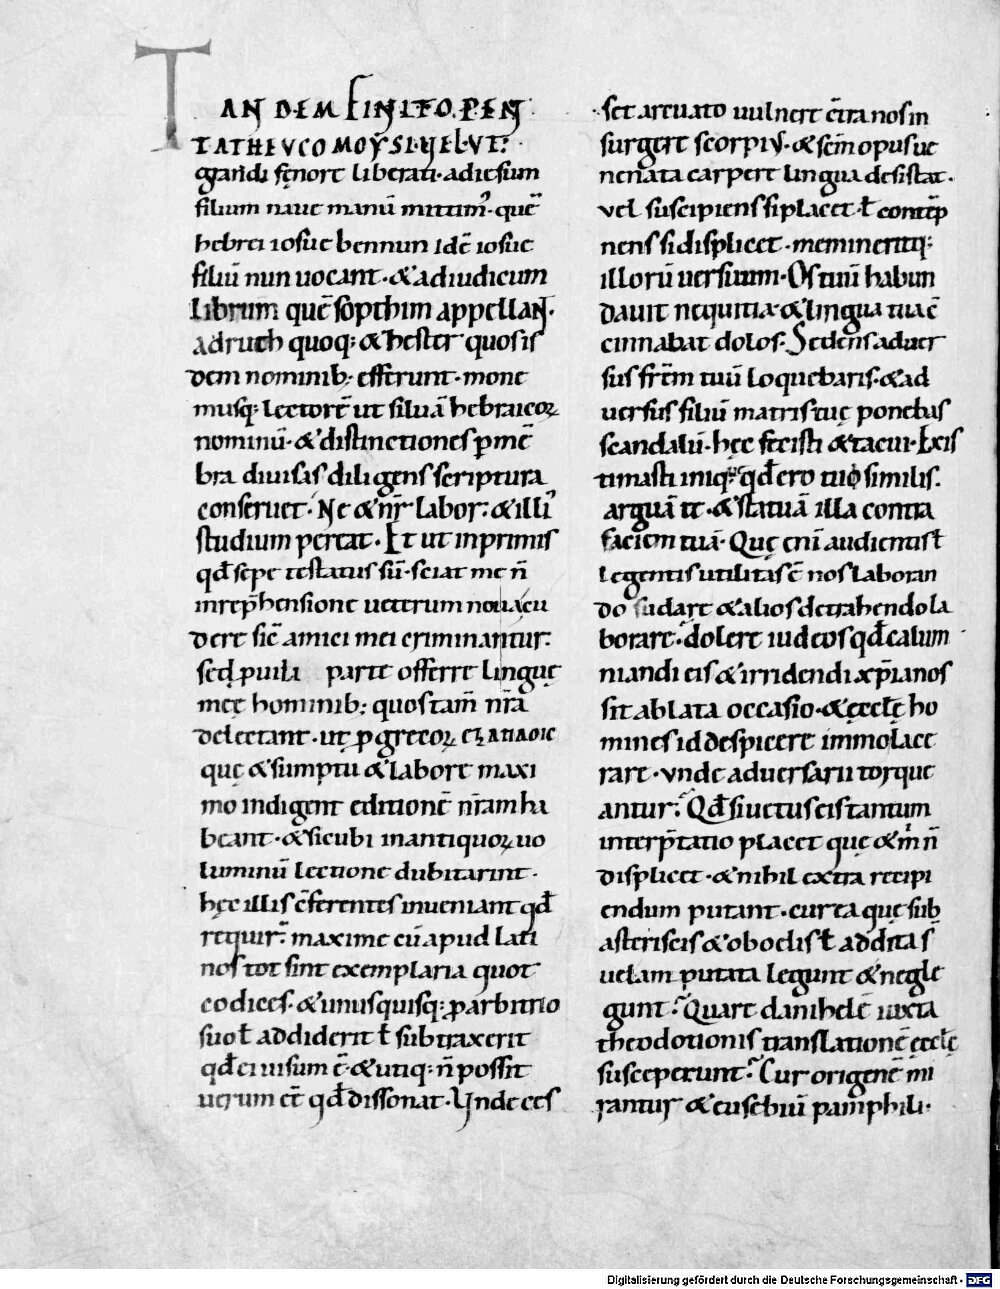 TANDEM FINITO PEN
TATHEUCO MOYSI·VELUT
grandi fęnore liberati·adiesum
filium naue manū mittim᷒·quē
hebrei iosue bennun idē iosue
filiū nun uocant·&adiudicum
Librum quē sopthim appellaɴ·
adruth quoq; & hester quosis
dem nominib; efferunt·mone
musq; Lectorē ut siluā hebraicoꝝ
nominū·&distinctiones ꝑ mē
bra diuisas diligens scriptura
conseruet·Ne & nr̄ labor & illi᷒
studium pereat·Et ut inprimis
qđ sepe testatus sū·sciat me n̄
inrep̄hensione ueterum noua cu
dere sic̄ amici mei criminantur·
sed puili parte offerre linguę
męę hominib; quos tam̄ nr̄a
delectant·ut ꝓ grecoꝝ εξαπλοιϲ
quę &sumptu &labore maxi
mo indigent editionē nr̄am ha
beant·&sicubi inantiquoꝝ uo
luminū lectione dubitarint·
hęc illis c̄ferentes inueniant qđ
requir̄ maxime cū apud lati
nos tot sint exemplaria quot
codices·&unusquisq; ꝓ arbitrio
suo ł addiderit ł subtraxerit
qđ ei uisum ē·&utiq; n̄ possit
uerum eē qđ dissonat·Unde ces
set arcuato uulnere c̄tra nos in
surgere scorpiꝰ·&sc̄m opus ue
nenata carpere lingua desistat·
vel suscipiens si placet·ł contēp
nens si displicet·memineritq;
illorū uersuum·Os tuū habun
dauit nequitia·&lingua tua c̄
cinnabat dolos·Sedens aduer
sus fr̄em tuū loquebaris·&ad
uersus filiū matris tuę ponebas
scandalū·hęc fecisti &tacui·Exis
timasti iniq; qđ ero tui similis·
arguā te·&statuā illa contra
faciem tuā·Quę enī audientis ł
legentis utilitas ē nos laboran
do sudare &alios detrahendo la
borare·dolere iudeos qđ calum
niandi eis &irridendi xp̄ianos
sit ablata occasio·&ęcclę ho
mines id despicere immo lace
rare·vnde aduersarii torque
antur·Qđ si uetus eis tantum
interp̄tatio placet quę &m᷒ n̄
displicet·&nihil extra recipi
endum putant·cur ea quę sub
asteriscis &obodis ł addita s̄
uel am putata legunt &negle
gunt·Quare danihelē iuxta
theodotionis translationē ęcclę
susceperunt·Cur origenē mi
rantur &eusebiū pamphili·
Digitalisierung gefördert durch die Deutsche Forschungsgemeinschaft - DFG